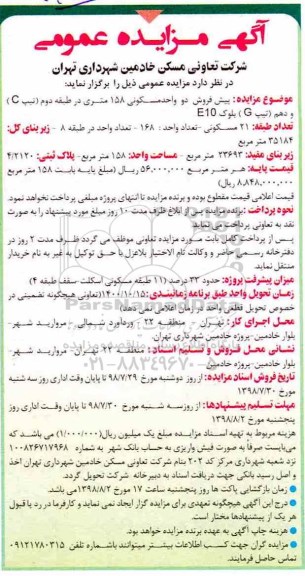 آگهی مزایده عمومی
شرکت تعاونی مسکن خادمین شهرداری تهران
در نظر دارد مزایده عمومی ذیل را برگزار نماید:
موضوع مزایده: پیش فروش دو واحدمسکونی ۱۵۸ متری در طبقه دوم (تیپ C )
و دهم (تیپ G ) بلوک E10
تعداد طبقه: ۲۱ مسکونی -تعداد واحد : ۱۶۸ - تعداد واحد در طبقه ۸ - زیربنای کل:
۳۵۱۸۴ متر مربع
زیربنای مفید: ۲۳۶۹۳ متر مربع - مساحت واحد: ۱۵۸ متر مربع- پلاک ثبتی: ۴/۲۱۲۰
قیمت پایه: هر متر مربع ۵۶,۰۰۰,۰۰۰ ریال (مبلغ پایه بابت ۱۵۸ متر مربع
۸,۸۴۸,۰۰۰,۰۰۰ ریال)
قیمت اعلامی قیمت مقطوع بوده و برنده مزایده تا انتهای پروژه مبلغی پرداخت نخواهد نمود.
نحوه پرداخت: برنده مزایده پس از ابلاغ ظرف مدت ۱۰ روز مبلغ مورد پیشنهاد را به صورت
نقد به تعاونی پرداخت می نماید
پس از پرداخت کامل بابت مورد مزایده تعاونی موظف می گردد ظرف مدت ۲ روز در
دفترخانه رسمی حاضر و وکالت تام الاختیار بلاعزل با حق توکیل به غیر به نام خریدار
منتقل نماید.
میزان پیشرفت پروژه: حدود ۳۲ درصد (۱۱ طبقه مسکونی اسکلت -سقف طبقه ۴)
زمان تحویل واحد طبق برنامه زمانبندی: ۱۴۰۰/۱۰/۱۵ (تعاونی هیچگونه تضمینی در
خصوص تحویل قطعی واحد در زمان اعلامی نمی دهد)
محل اجرای کار: تهران - منطقه ۲۲ - وردآورد شمالی - مروارید شهر-
بلوار خادمین- پروژه خادمین شهرداری تهران
نشانی محل فروش و تسلیم اسناد: منطقه ۲۲ تهران- مروارید شهر-
بلوارخادمین- پروژه خادمین
تاریخ فروش اسناد مزایده: از روز دوشنبه مورخ ۹۸/۷/۲۹ تا پایان وقت اداری روز سه شنبه
مورخ ۱۳۹۸/۷/۳۰
مهلت تسلیم پیشنهادها: از روز سه شنبه مورخ ۹۸/۷/۳۰ تا پایان وقت اداری روز
پنجشنبه مورخ ۱۳۹۸/۸/۲
هزینه مربوط به تهیه اسناد مزایده مبلغ یک میلیون ریال (۱/۰۰۰/۰۰۰) می باشد که
می‌بایست صرفا به صورت فیش واریزی به حساب بانک شهر به شماره ۱۰۰۸۳۶۷۱۷۹۶۸
نزد شعبه شهرداری مرکز کد ۲۰۲ بنام شرکت تعاونی مسکن خادمین شهرداری تهران اخذ
و اصل رسید بانکی جهت دریافت اسناد به دبیرخانه شرکت تحویل گردد.
زمان بازگشایی پاکت ها روز پنجشنبه ساعت ۱۷ مورخ ۱۳۹۸/۸/۲ می باشد.
درج این آگهی هیچگونه تعهدی برای مزایده گزار ایجاد نمی نماید و کارفرما در رد یا قبول
هر یک از پیشنهادها مختار است.
هزینه چاپ آگهی به عهده برنده مزایده خواهد بود.
مزایده گران جهت کسب اطلاعات بیشتر میتوانند باشماره تلفن ۰۹۱۲۱۷۸۰۳۱۵
تماس حاصل فرمایند.